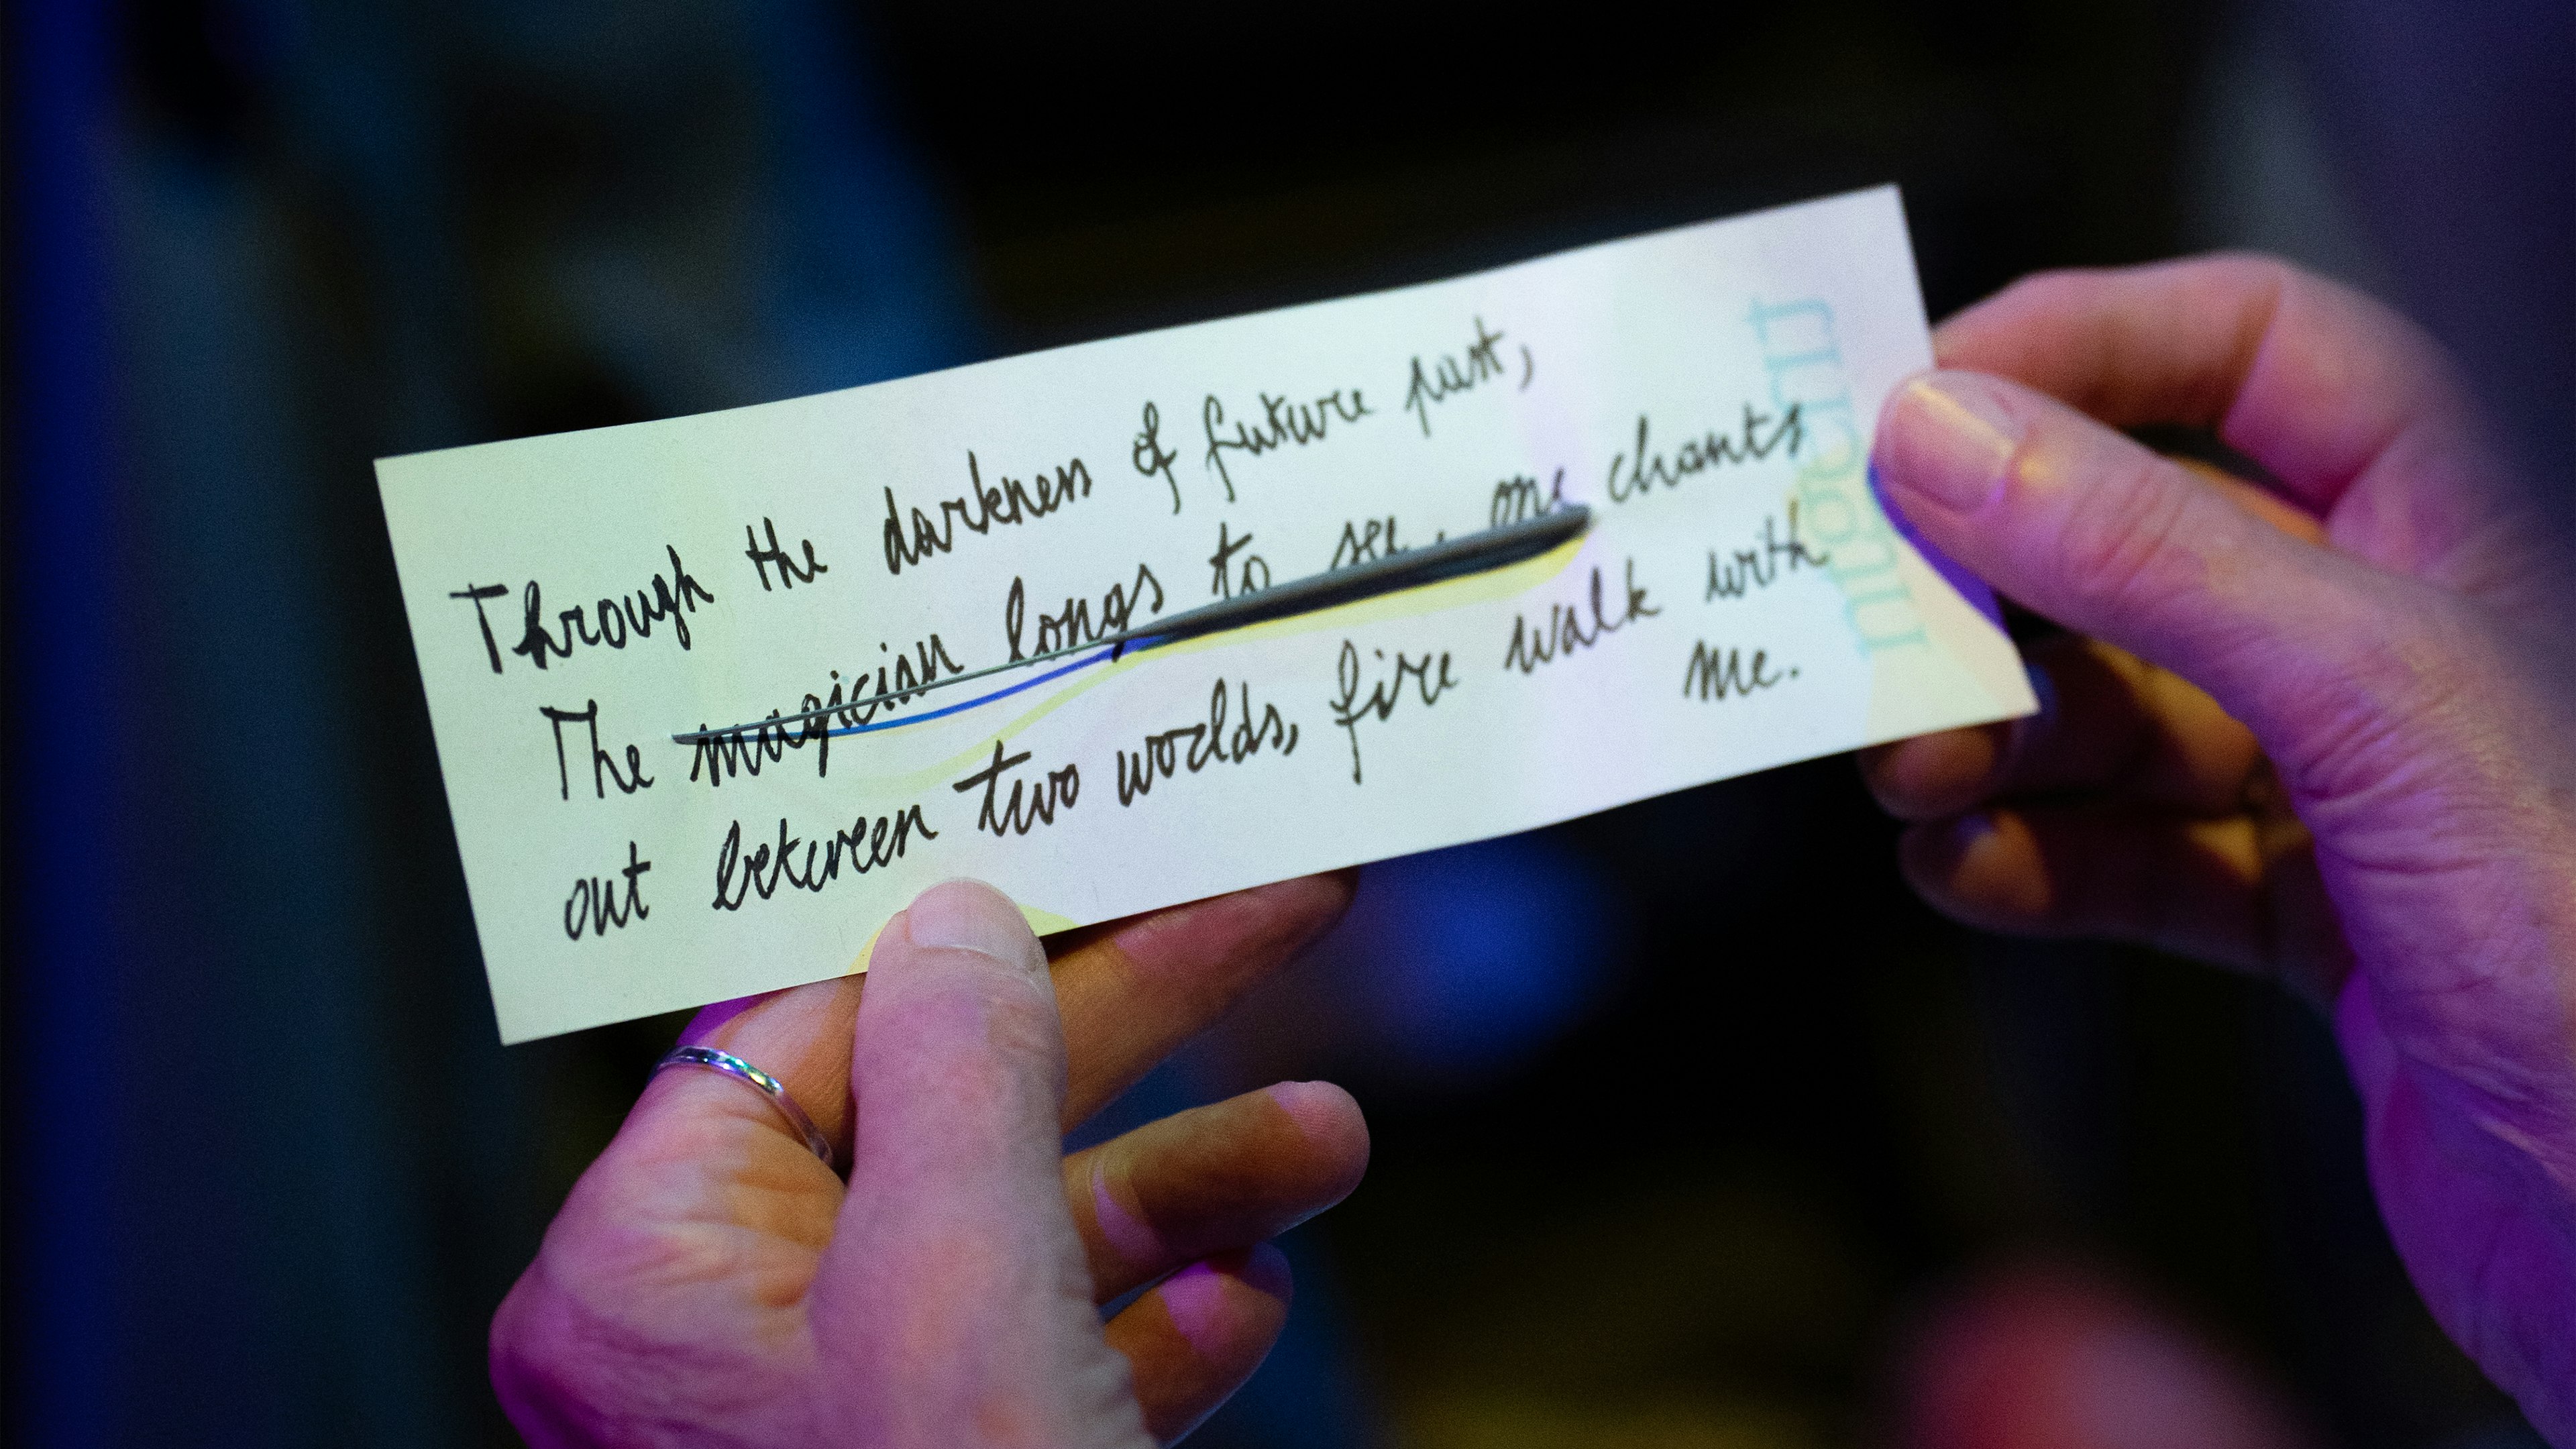 Through the darkness of future past,
The magician longs to see, one chants
out between two worlds, fire walk with
me.